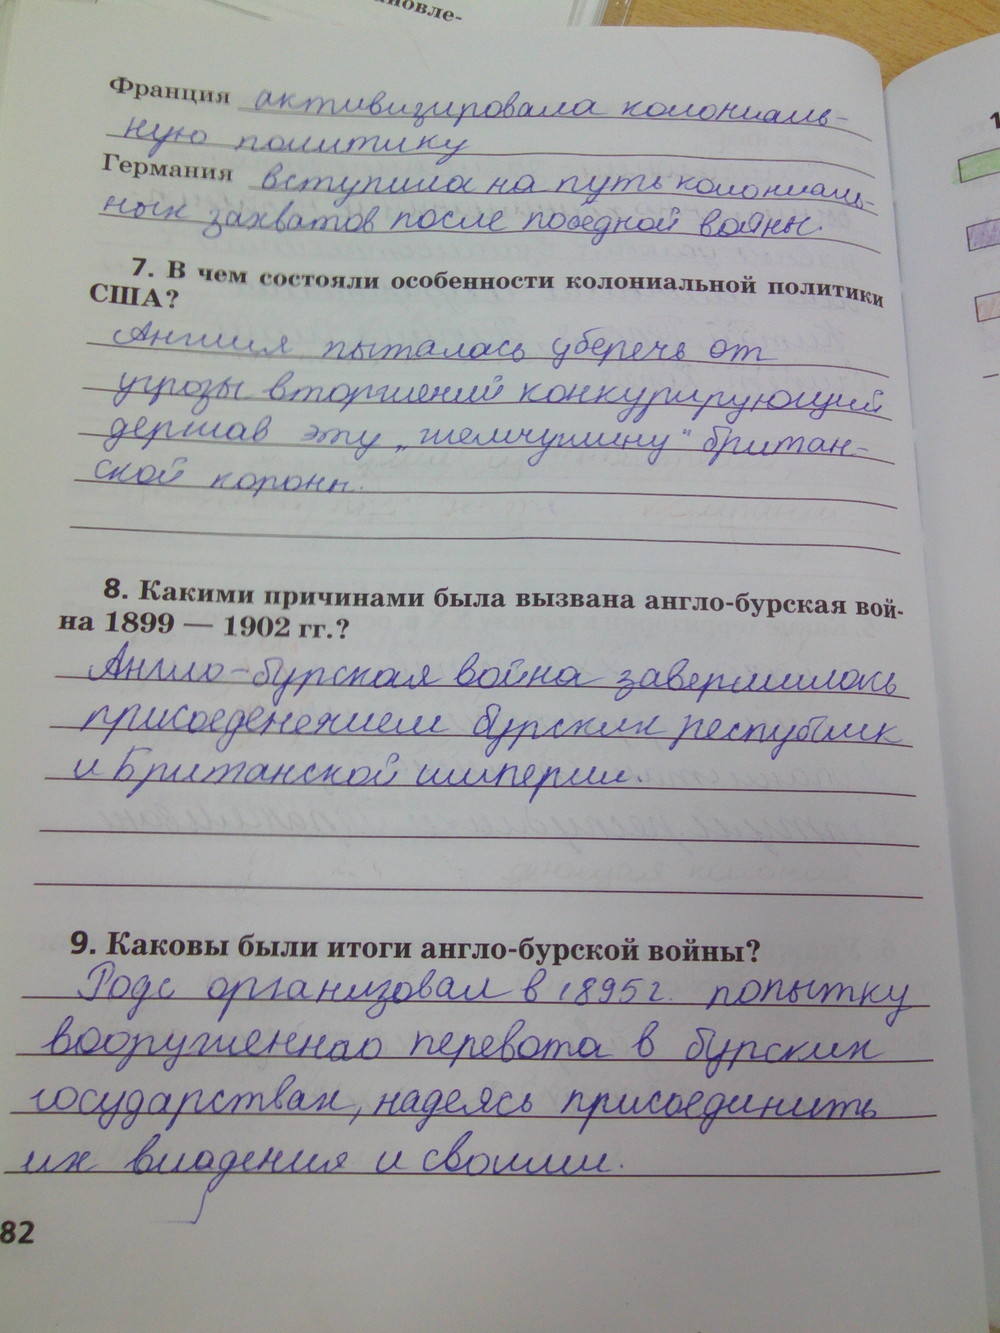 новле-
Франция активизировала колониаль-
ную политику
Германия вступила на путь колониаль-
ных захватов после победной войны.
7. В чем состояли особенности колониальной политики
США?
Англия пыталась уберечь от
угрозы вторжений конкурирующий
держав эту "жемчужину" британ-
ской короны.
8. Какими причинами была вызвана англо-бурская вой-
на 1899 — 1902 гг.?
Англо-бурская война завершилась
присоеденением бурских республик
и Британской империи.
9. Каковы были итоги англо-бурской войны?
Родс организовал в 1895 г. попытку
вооруженнао перевота в бурских
государствах, надеясь присоединить
их владения и своими.
82
1